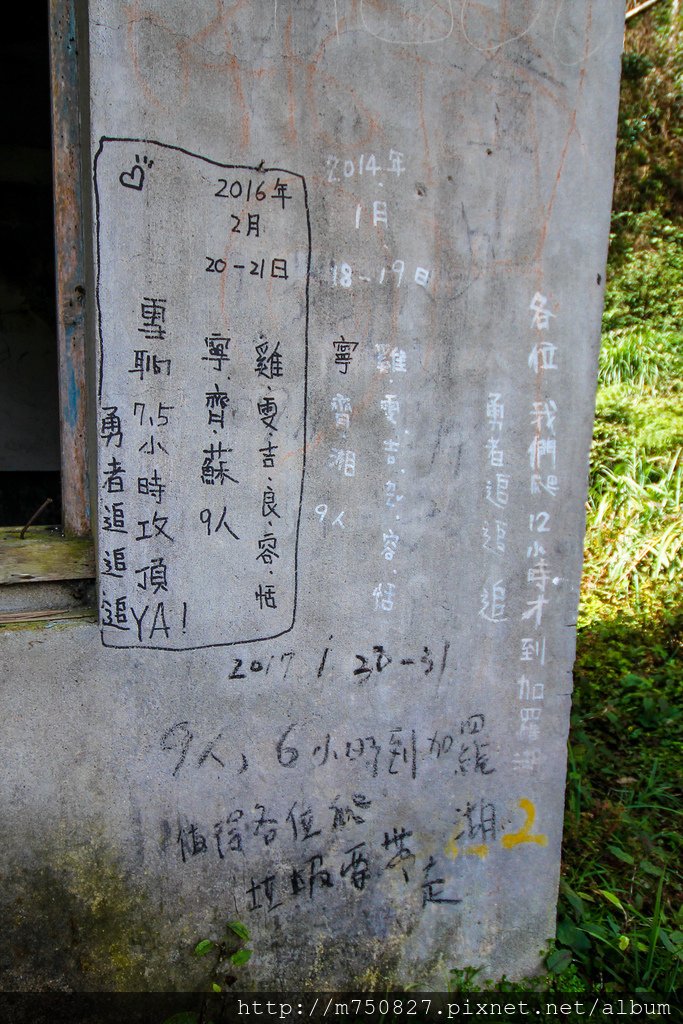 2016年
2月
20-21日
雞.雯.吉.良.容.恬
寧.齊蘇
9人
雪聊
7.5小時攻頂YA!
勇者追追追
2014年
1月
18-19日
雞.雯.吉.良.容.恬
寧.齊.湖
9人
各位 我們爬12小時才到加羅湖
勇者追追追
2017. 1 28-31
9人,6小時到加羅湖
值得各位爬
垃圾要带走
2
http://m750827.pixnet.net/album